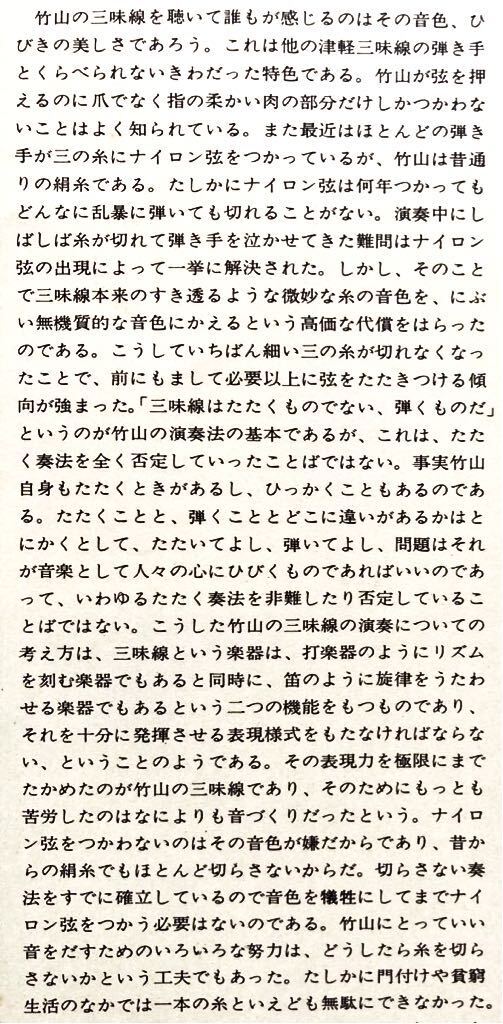 竹山の三味線を聴いて誰もが感じるのはその音色、ひ
びきの美しさであろう。これは他の津軽三味線の弾き手
とくらべられないきわだった特色である。竹山が弦を押
えるのに爪でなく指の柔かい肉の部分だけしかつかわな
いことはよく知られている。また最近はほとんどの弾き
手が三の糸にナイロン弦をつかっているが、竹山は昔通
りの絹糸である。たしかにナイロン弦は何年つかっても
どんなに乱暴に弾いても切れることがない。演奏中にし
ばしば糸が切れて弾き手を泣かせてきた難問はナイロン
弦の出現によって一挙に解決された。しかし、そのこと
で三味線本来のすき透るような微妙な糸の音色を、にぶ
い無機質的な音色にかえるという高価な代償をはらった
のである。こうしていちばん細い三の糸が切れなくなっ
たことで、前にもまして必要以上に弦をたたきつける傾
向が強まった。「三味線はたたくものでない、弾くものだ」
というのが竹山の演奏法の基本であるが、これは、たた
く奏法を全く否定していったことばではない。事実竹山
自身もたたくときがあるし、ひっかくこともあるのであ
る。たたくことと、弾くこととどこに違いがあるかはと
にかくとして、たたいてよし、弾いてよし、問題はそれ
が音楽として人々の心にひびくものであればいいのであ
って、いわゆるたたく奏法を非難したり否定しているこ
とばではない。こうした竹山の三味線の演奏についての
考え方は、三味線という楽器は、打楽器のようにリズム
を刻む楽器でもあると同時に、笛のように旋律をうたわ
せる楽器でもあるという二つの機能をもつものであり、
それを十分に発揮させる表現様式をもたなければならな
い、ということのようである。その表現力を極限にまで
たかめたのが竹山の三味線であり、そのためにもっとも
苦労したのはなによりも音づくりだったという。ナイロ
ン弦をつかわないのはその音色が嫌だからであり、昔か
らの絹糸でもほとんど切らさないからだ。切らさない奏
法をすでに確立しているので音色を犠牲にしてまでナイ
ロン弦をつかう必要はないのである。竹山にとっていい
音をだすためのいろいろな努力は、どうしたら糸を切ら
さないかという工夫でもあった。たしかに門付けや貧窮
生活のなかでは一本の糸といえども無駄にできなかった。